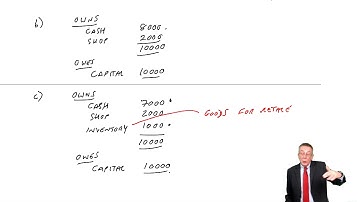 b) OWNS
CASH 8000
SHOP 2000
10000
OWES
CAPITAL 10000
c) OWNS
CASH 7000
SHOP 2000
INVENTORY 1000 GOODS FOR RESALE
10000
OWES
CAPITAL 10000